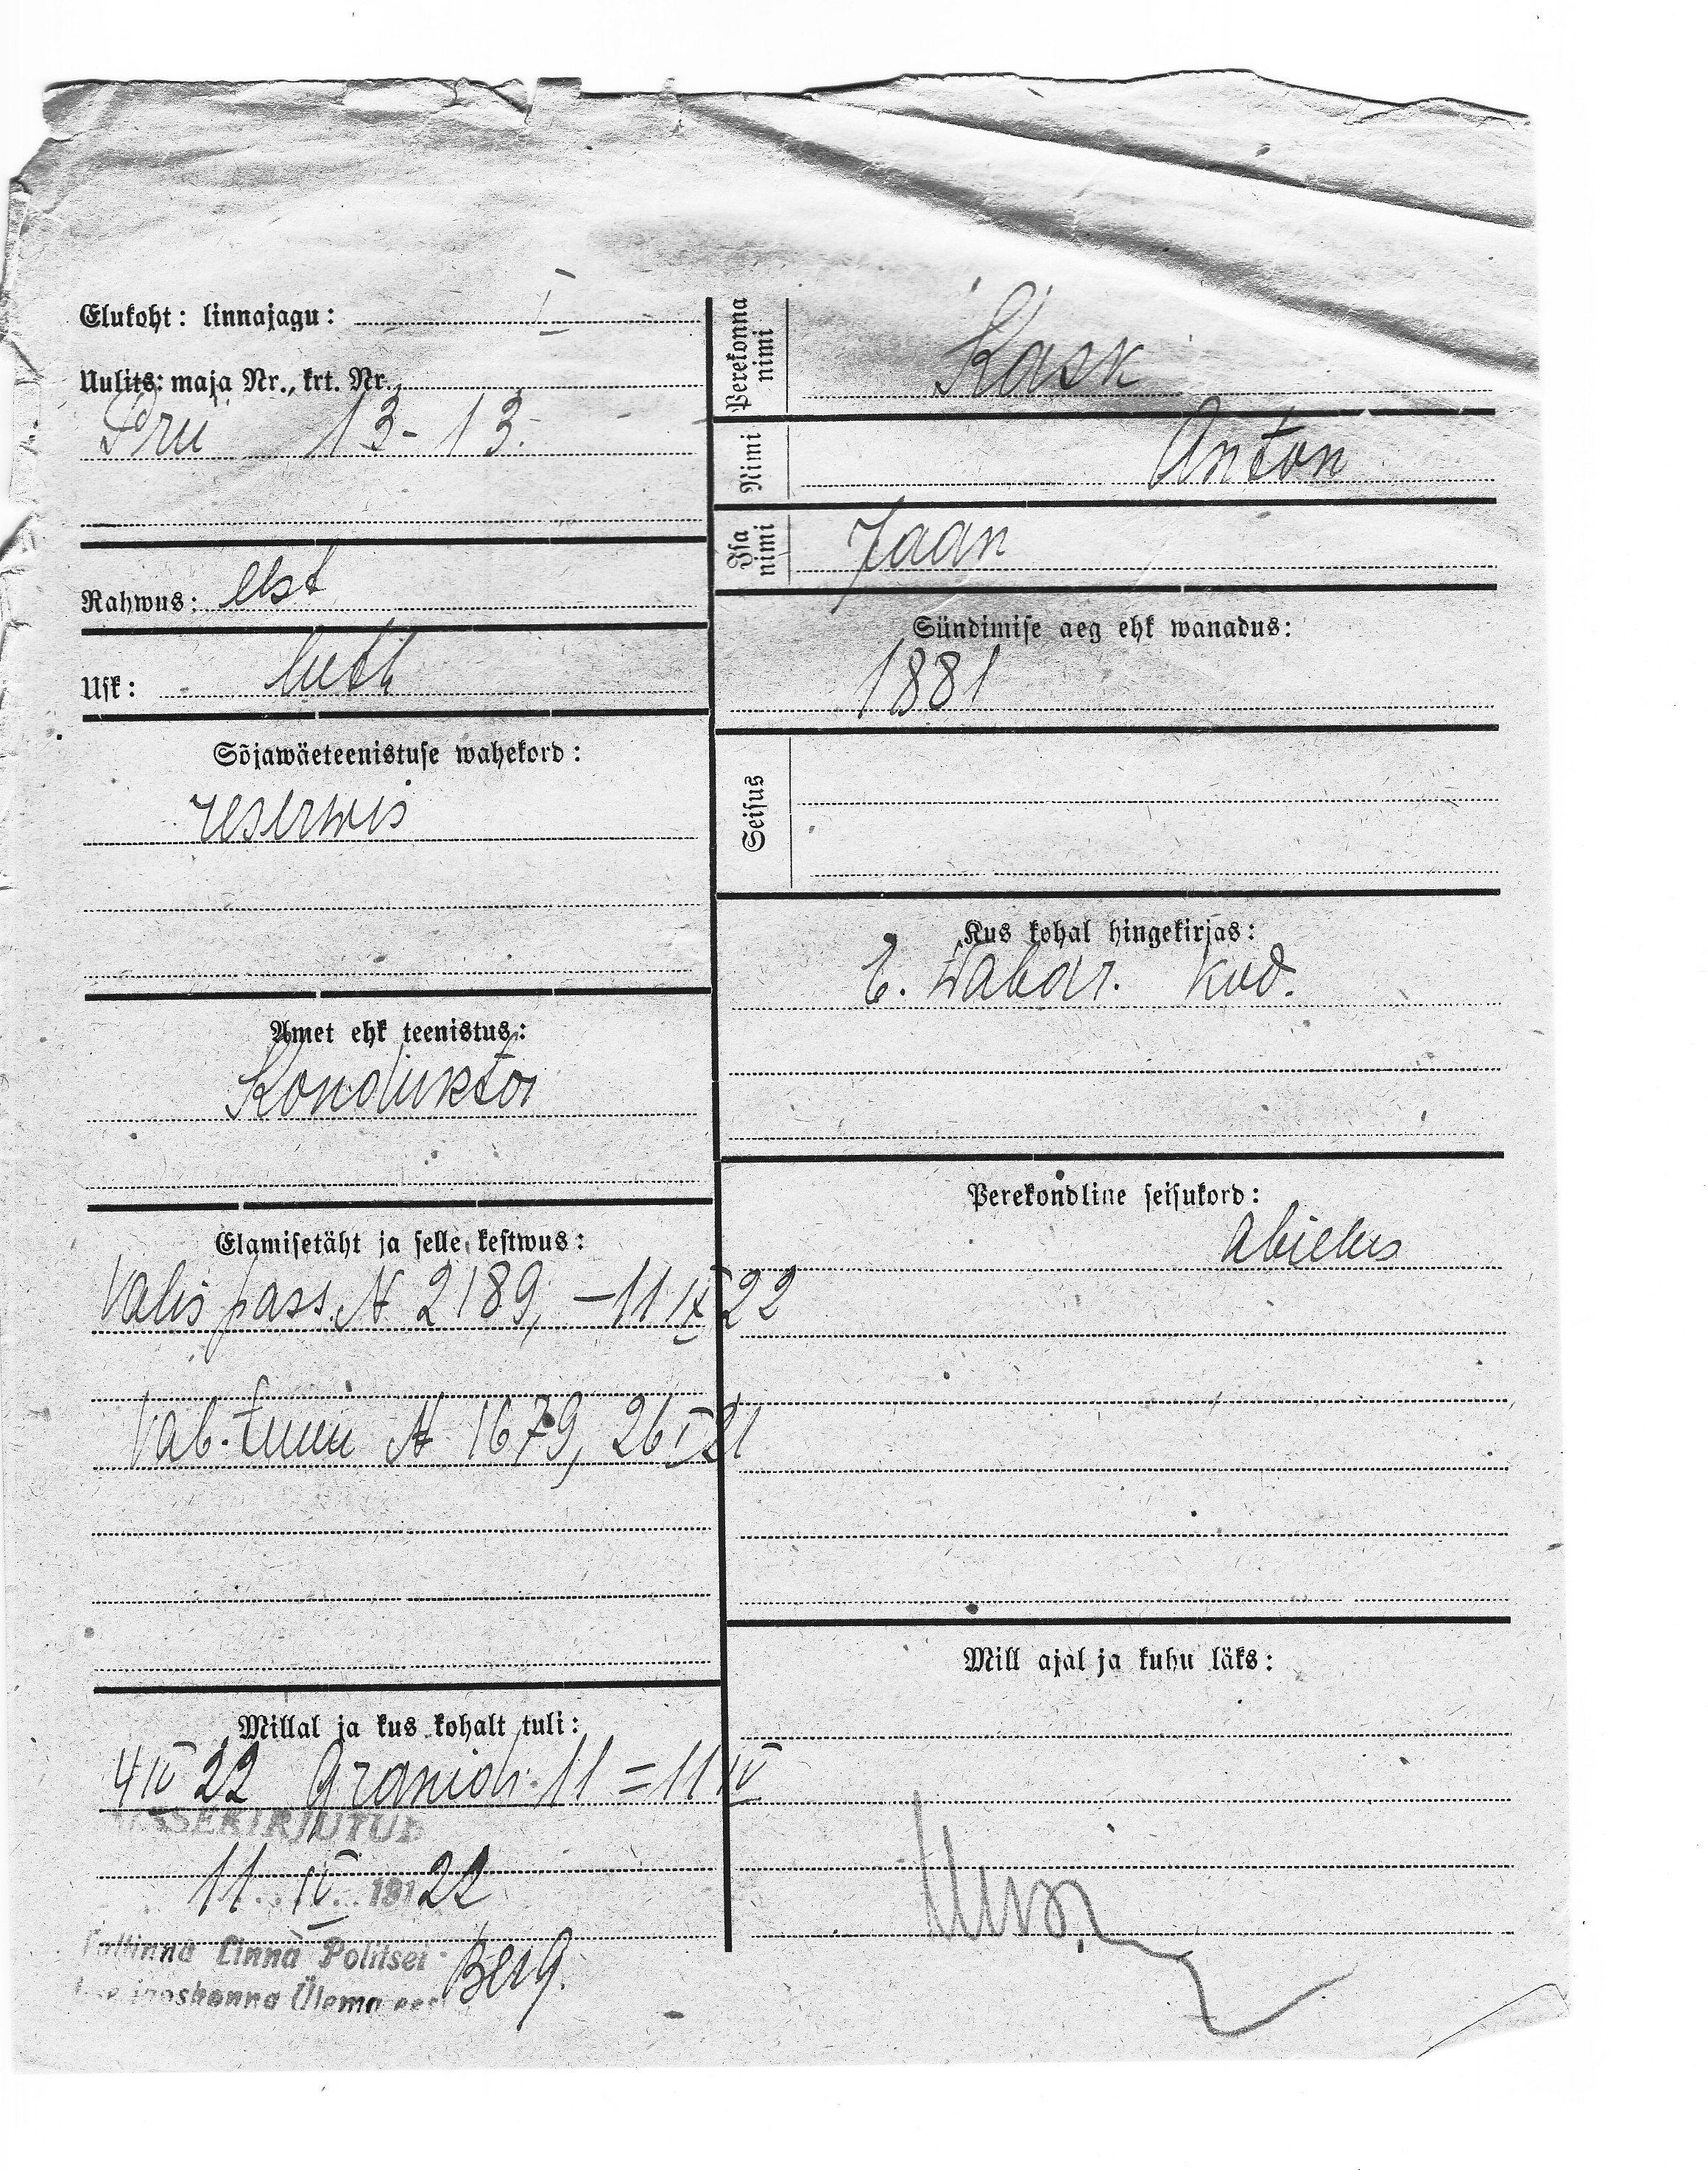 Elukoht: linnajagu: I
Uulits: maja Nr., krt. Nr.
Pru 13-13.
Rahwus: eest
Usk: luth
Sõjawäeteenistuse wahekord:
reserwis
Amet ehk teenistus:
Konduktor
Elamisetäht ja selle kestwus:
Valis pass. N 2189, – 11 IX 22
Vab. tunn N 1679, 26 I 21
Millal ja kus kohalt tuli:
4 IV 22 11 = 11 IV
SISSEKIRJUTUD
11. IV. 191 22
Tallinna Linna Politsei
jaoskonna Ülema eest Berg.
Perekonna nimi Kask
Nimi Anton
Isa nimi Jaan
Sündimise aeg ehk wanadus:
1881
Seisus
Kus kohal hingekirjas:
E. Wabar. kod.
Perekondline seisukord:
abielus
Mill ajal ja kuhu läks: